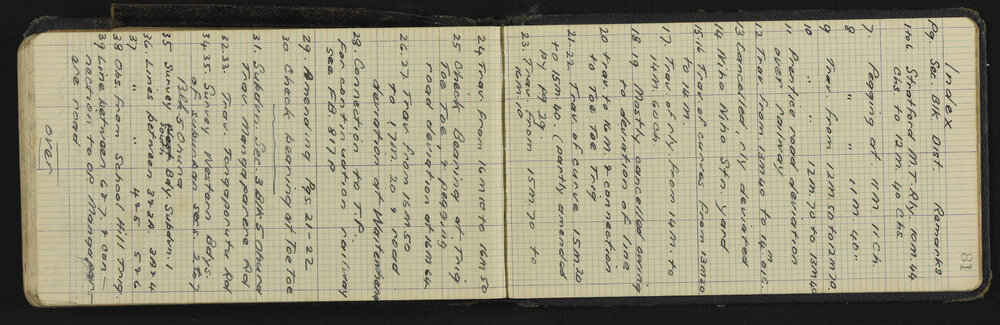 81
Index
Pg. Sec. Blk Dist. Remarks
1 to 6. Stratford M.T. Rly. 10m. 44
Chs. to 12 M. 40 Chs.
7. Pegging at 11 M. 11 Ch.
8 " " 11 M. 40 "
9 Trav. from 12 M. 50 to 12 M 70.
10 " " 12 M. 70 to 13 M 40
11 Prentice road deviation
over railway
12 Trav. from 13 M 40 to
13 Cancelled, rly deviated
14 Niho Niho Stn. yard
15.16 Trav of curves from 13 M 20
to 14 M.
17. Trav of rly. from 14 M. to
14 M. 60 Ch
18.19 Mostly cancelled owing
to deviation of line
20 trav. to 16 M & connection
to Toe Toe Trig
21-22 Trav. of curve 15 M 20
to 15 M 40. (partly amended
by pg 29
23. Trav. from 15 M. 70 to
16 M. 10
24 Trav. from 16 M 10 to 16 M 50
25 Check Bearing at Trig
Toe Toe, & pegging
road deviation at 16 M 64
26-27 Trav. from 16 M 50
to 17 M. 20 & road
deviation at
28. Connection to T.P.
For continuation railway
see F.B. 817 P
29. Amending Pgs. 21-22
30 Check bearing at Toe Toe
31. Subdn. Sec. 3 Blk 5 Ohura
Trav. Mangaparere Rd
32.33. Trav. Tongaporutu Rd
34.35. Survey Western Bdys.
of suburban secs. 2 to 7
Blk 5 Ohura
35 Survey South Bdy. Subdn. 1
36. Lines between 3 & 2A. 3 & 4
37 " " 4 & 5. 5 & 6
38 Obs. from School Hill Trig.
39 Line between 6 & 7. & con-
nection to OP
are road
over